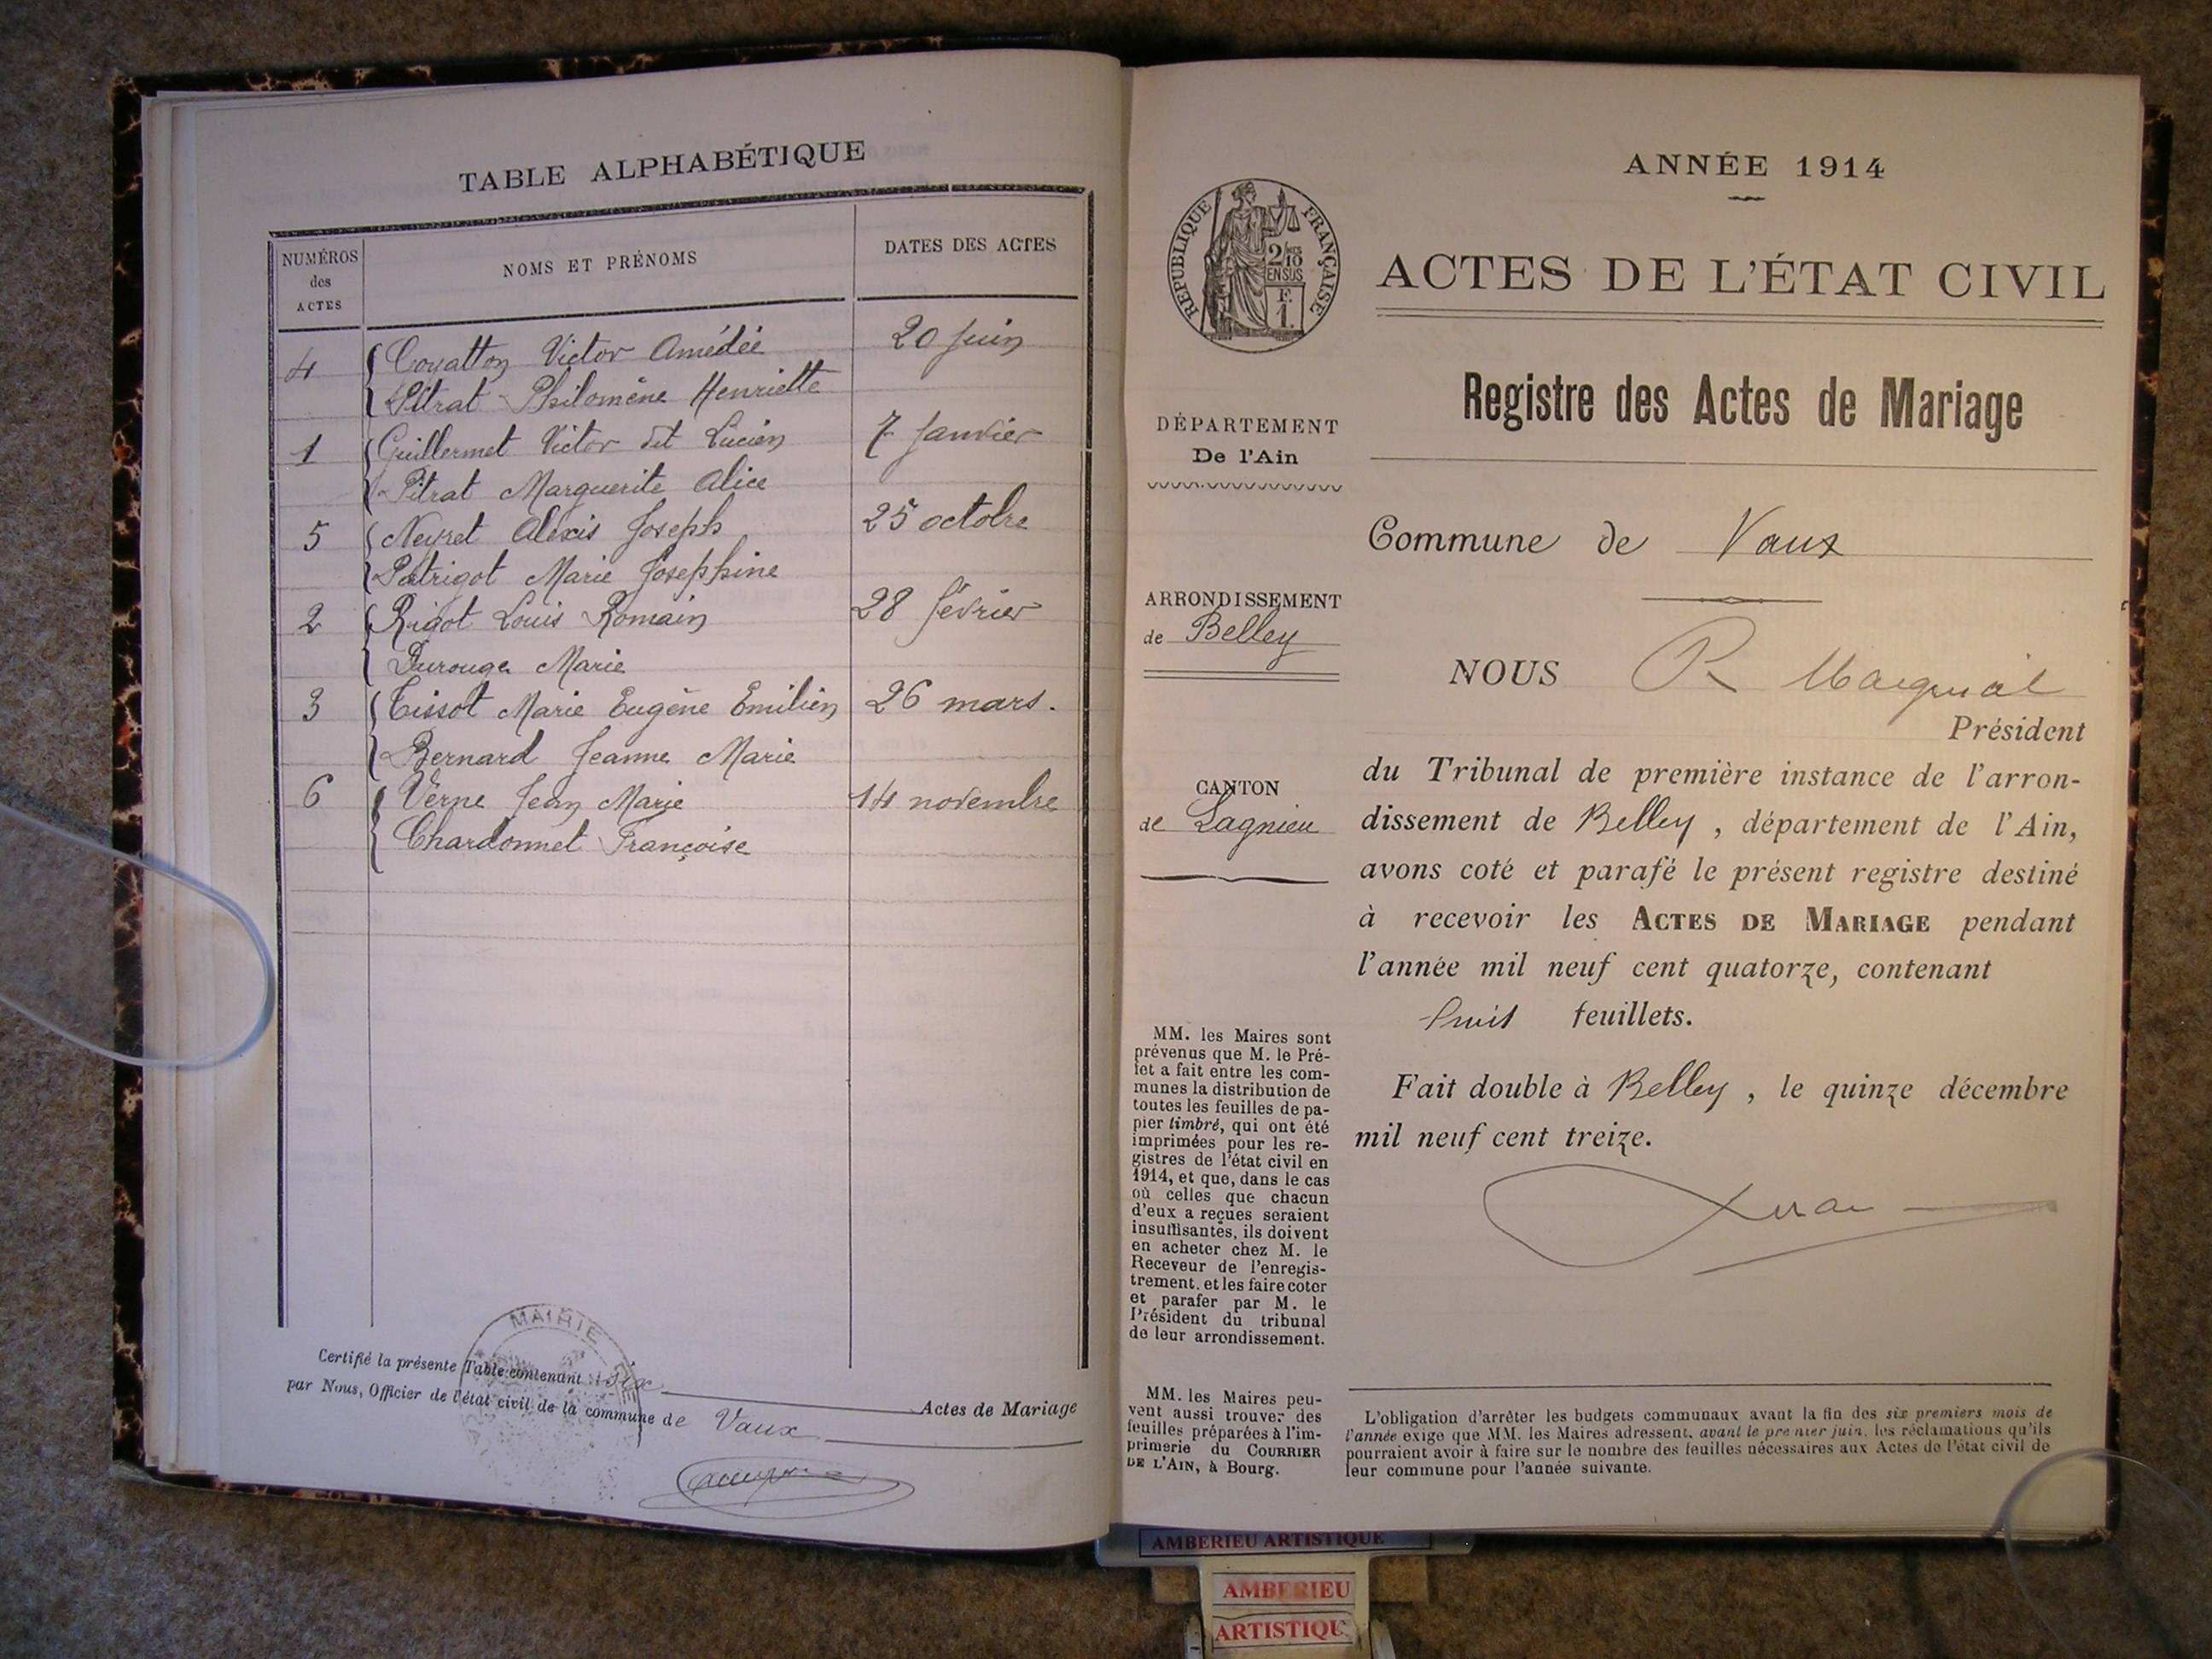 TABLE ALPHABÉTIQUE
NUMÉROS
des
ACTES
NOMS ET PRÉNOMS
DATES DES ACTES
4 Coyatton Victor Amédée 20 juin
Pitrat Philomène Henriette
1 Guillermet Victor dit Lucien 7 janvier
Pitrat Marguerite Alice
5 Neyret Alexis Joseph 25 octobre
Patrigot Marie Josephine
2 Rigot Louis Romain 28 février
Durouge Marie
3 Tissot Marie Eugène Emilien 26 mars.
Bernard Jeanne Marie
6 Verne Jean Marie 14 novembre
Chardonnet Françoise
MAIRIE
Certifié la présente Table contenant six
Actes de Mariage
par Nous, Officier de l'état civil de la commune de Vaux
ANNÉE 1914
REPUBLIQUE FRANÇAISE
2/10
EN SUS
F.
1.
ACTES DE L'ÉTAT CIVIL
Registre des Actes de Mariage
DÉPARTEMENT
De l'Ain
ARRONDISSEMENT
de Belley
CANTON
de Lagnieu
MM. les Maires sont
prévenus que M. le Pré-
fet a fait entre les com-
munes la distribution de
toutes les feuilles de pa-
pier timbré, qui ont été
imprimées pour les re-
gistres de l'état civil en
1914, et que, dans le cas
où celles que chacun
d'eux a reçues seraient
insuffisantes, ils doivent
en acheter chez M. le
Receveur de l'enregis-
trement, et les faire coter
et parafer par M. le
Président du tribunal
de leur arrondissement.
MM. les Maires peu-
vent aussi trouver des
feuilles préparées à l'im-
primerie du COURRIER
DE L'AIN, à Bourg.
Commune de Vaux
NOUS R
Président
du Tribunal de première instance de l'arron-
dissement de Belley, département de l'Ain,
avons coté et parafé le présent registre destiné
à recevoir les ACTES DE MARIAGE pendant
l'année mil neuf cent quatorze, contenant
huit feuillets.
Fait double à Belley, le quinze décembre
mil neuf cent treize.
L'obligation d'arrêter les budgets communaux avant la fin des six premiers mois de
l'année exige que MM. les Maires adressent, avant le premier juin, les réclamations qu'ils
pourraient avoir à faire sur le nombre des feuilles nécessaires aux Actes de l'état civil de
leur commune pour l'année suivante.
AMBERIEU ARTISTIQUE
AMBERIEU
ARTISTIQU